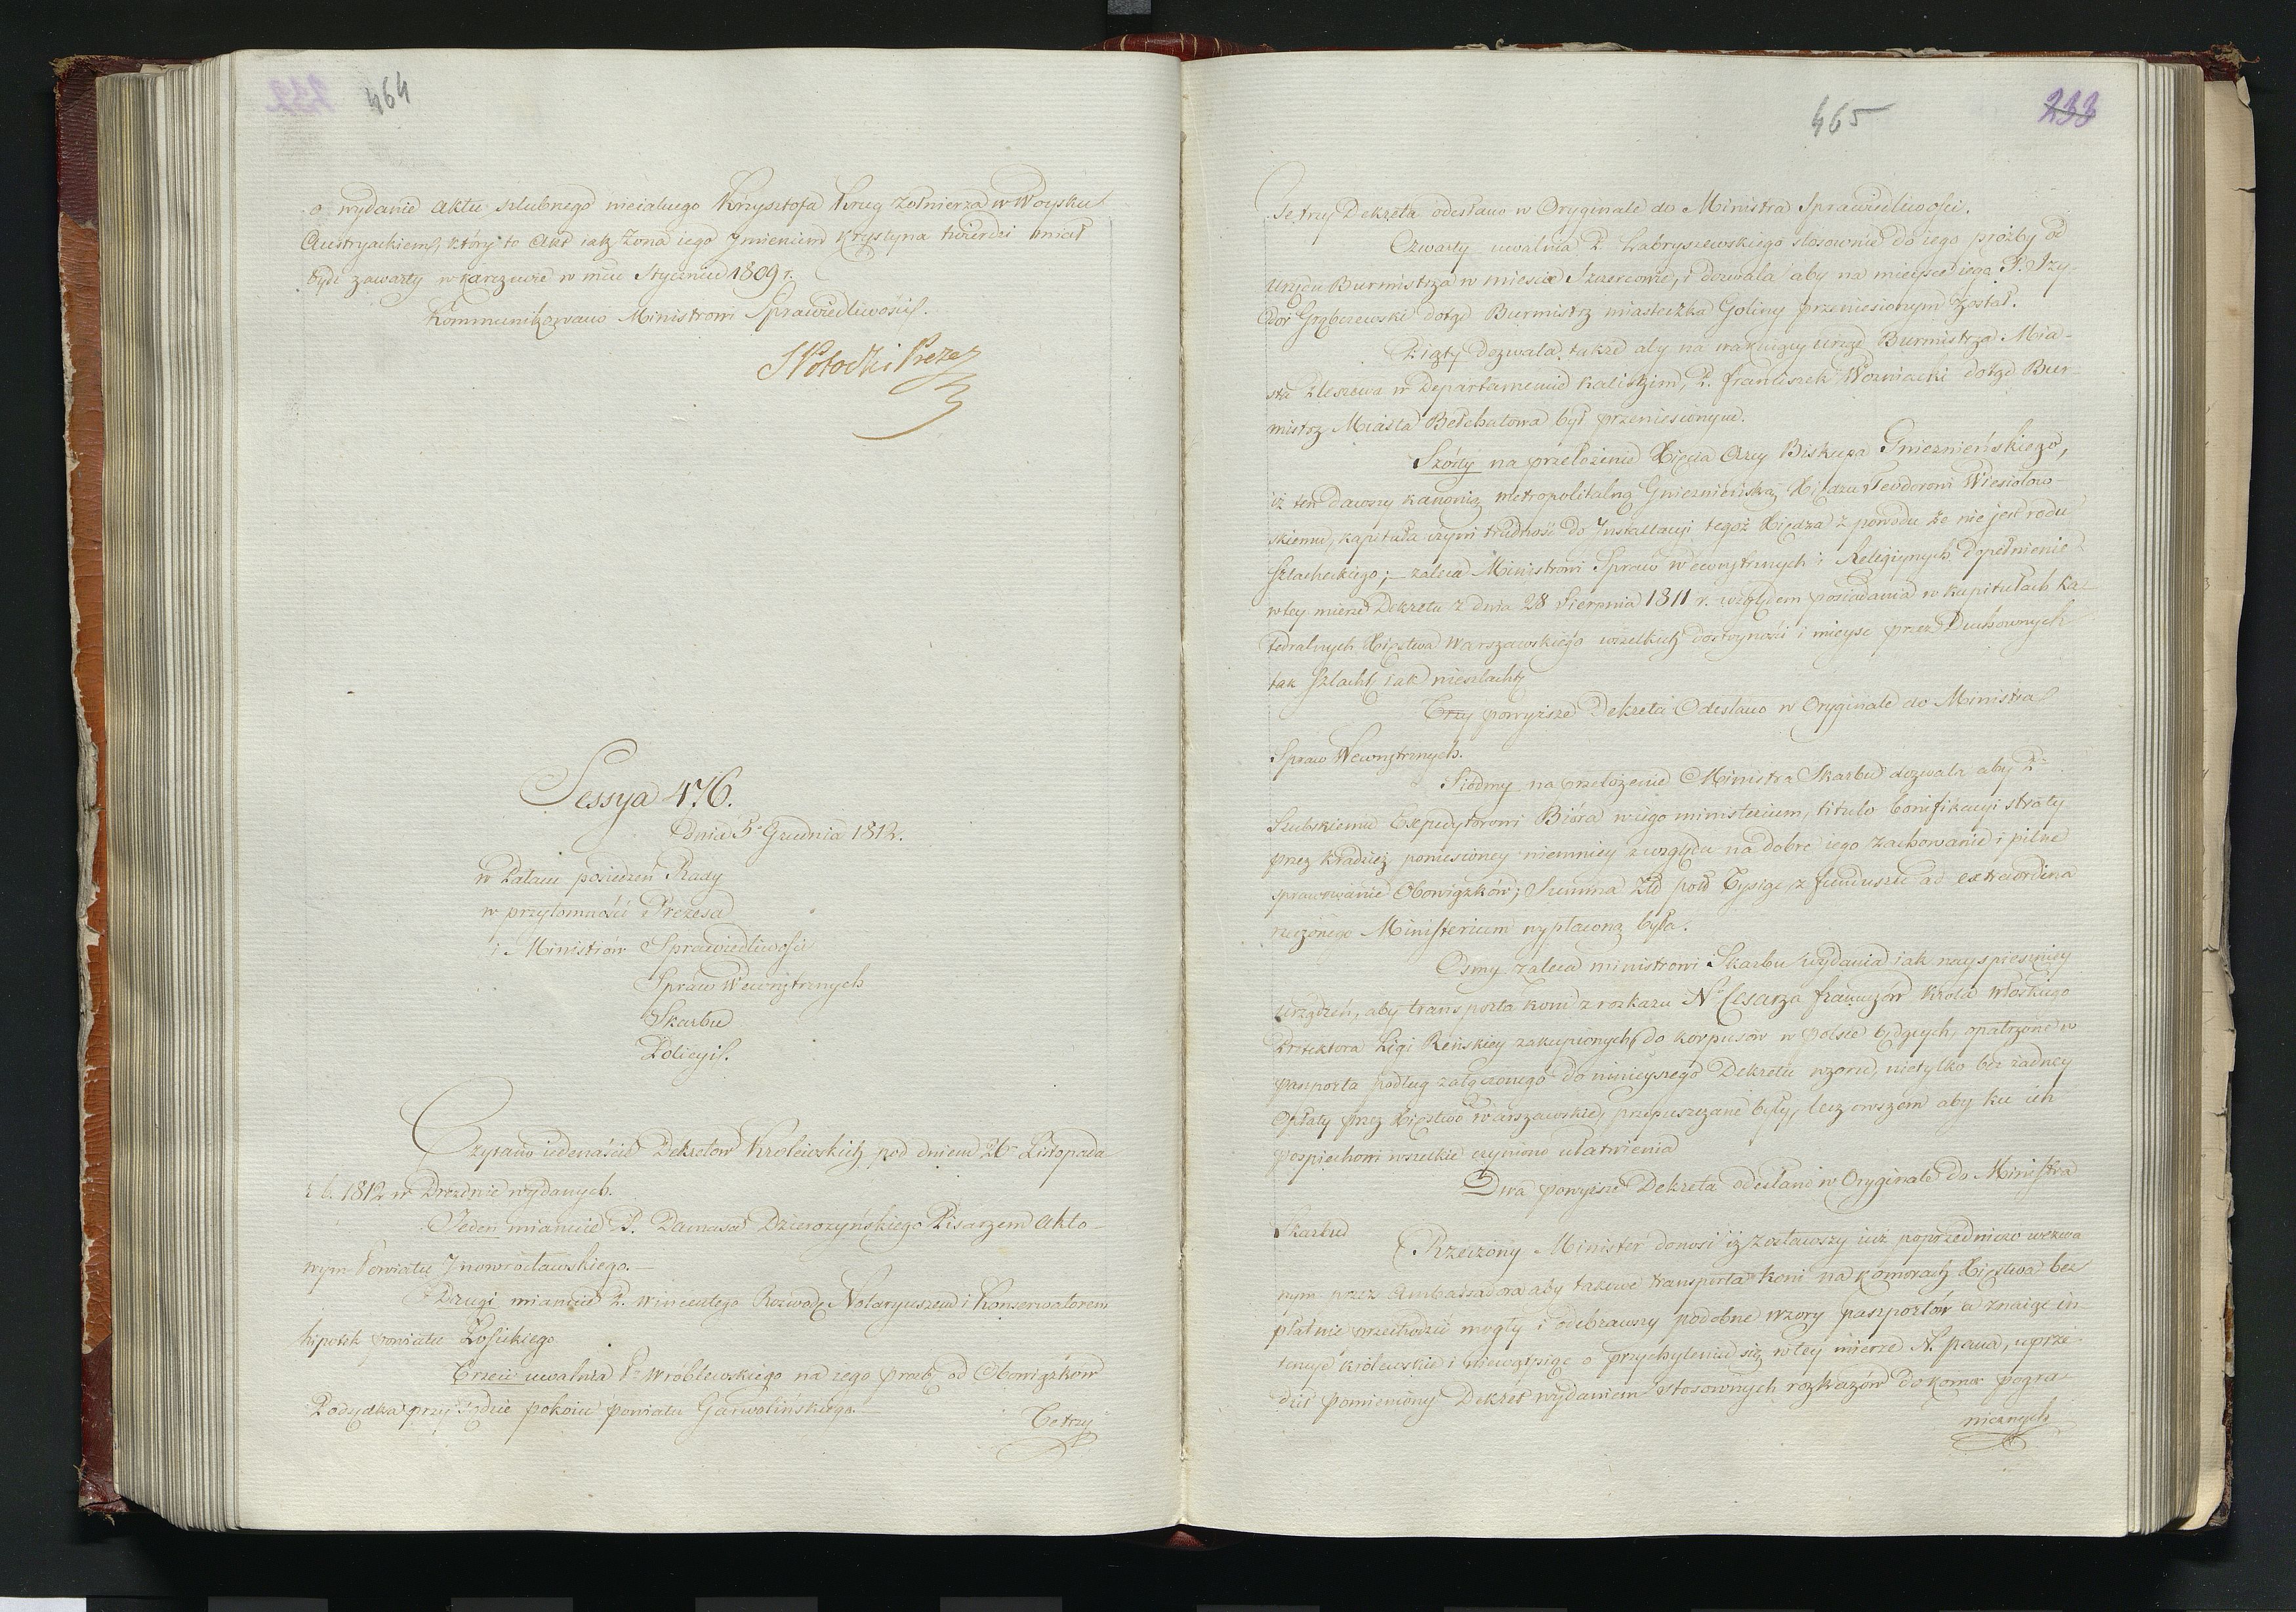 464
o wydanie aktu szlubnego nieiakiego Krzysztofa Krug żołnierza w Woysku
Austryackiem, który to Akt iak żona iego Jmieniem Krystyna twierdzi miał
bydź zawarty w Karczewie w mcu Styczniu 1809 r.
Kommunikowano Ministrowi Sprawiedliwości.
S Potocki Prezes
Sessya 476.
Dnia 5. Grudnia 1812.
w Pałacu posiedzeń Rady
w przytomności Prezesa
i Ministrów Sprawiedliwości
Spraw Wewnętrznych
Skarbu
Policyi.
Czytano iedenaście Dekretów Królewskich pod dniem 26 Listopada
r. b. 1812 w Dreźnie wydanych.
Jeden mianuie P. Damasa Dzierożyńskiego Pisarzem Akto-
wym Powiatu Jnowrocławskiego.
Drugi mianuie P. Wincentego Rozwadę Notaryuszem i Konserwatorem
hipotek powiatu Łosickiego
Trzeci uwalnia P. Wróblewskiego na iego prozbę od Obowiązków
Podsędka przy Sądzie pokoiu powiatu Garwolińskiego.
Te trzy
465
233
Te trzy Dekreta odesłano w Oryginale do Ministra Sprawiedliwości.
Czwarty uwalnia P. Labryszewskiego stosownie do iego prozby od
urzędu Burmistrza w mieście Szczercowie, i dozwala aby na mieysce iego P. Izy-
dor Grąbczewski dotąd Burmistrz miasteczka Goliny przeniesionym został.
Piąty dozwala także aby na wakuiący urząd Burmistrza Mia-
sta Pleszewa w Departamencie Kaliskim, P. Franciszek Wozniacki dotąd Bur-
mistrz Miasta Bełchatowa był przeniesionym.
Szósty na przełożenie Xięcia Arcy Biskupa Gnieznieńskiego,
iż ten dawszy kanonią metropolitalną Gnieznieńską Xiędzu Teodorowi Wiesiołow-
skiemu, kapituła czyni trudność do Jnstallacyi tegoż Xiędza z powodu że nie jest rodu
szlacheckiego; – zaleca Ministrowi Spraw Wewnętrznych i Religiynych dopełnienie
w tey mierze Dekretu z dnia 28 Sierpnia 1811 r. względem posiadania w kapitułach Ka-
tedralnych Xięstwa Warszawskiego wszelkich dostoyności i mieysc przez Duchownych
tak szlachtę iak nieszlachtę
Trzy powyższe Dekreta Odesłano w Oryginale do Ministra
Spraw Wewnętrznych.
Siódmy na przełożenie Ministra Skarbu dozwala aby P.
Szubskiemu Expedytorowi Bióra w iego ministerium, titulo bonifikacyi straty
przez kradzież poniesioney niemniey z względu na dobre iego zachowanie i pilne
sprawowanie Obowiązków; Summa Złł pols. Tysiąc z funduszu ad extraordina
rzeczonego Ministerium wypłaconą była.
Osmy zaleca ministrowi Skarbu wydania iak nayspieszniey
urządzeń, aby transporta koni z rozkazu N. Cesarza francuzów Króla włoskiego
Protektora Ligi Reńskiey zakupionych, do korpusów w Polsce będących, opatrzone w
paszporta podług załączonego do ninieyszego Dekretu wzoru, nietylko bez żadney
Opłaty przez Xięstwo Warszawskie, przepuszczane były, lecz owszem aby ku ich
pospiechowi wszelkie czyniono ułatwienia
Dwa powyższe Dekreta odesłano w Oryginale do Ministra
Skarbu
Rzeczony Minister donosi iż zostawszy iuż poprzedniczo wezwa
nym przez Ambassadora aby takowe transporta koni na komorach Xięstwa bez
płatnie przechodzić mogły i odebrawszy podobne wzory paszportów a znaiąc in-
tencye królewskie i niewątpiąc o przychyleniu się w tey mierze N. Pana, uprze-
dził pomieniony Dekret wydaniem stosownych rozkazów do komor pogra-
nicznych